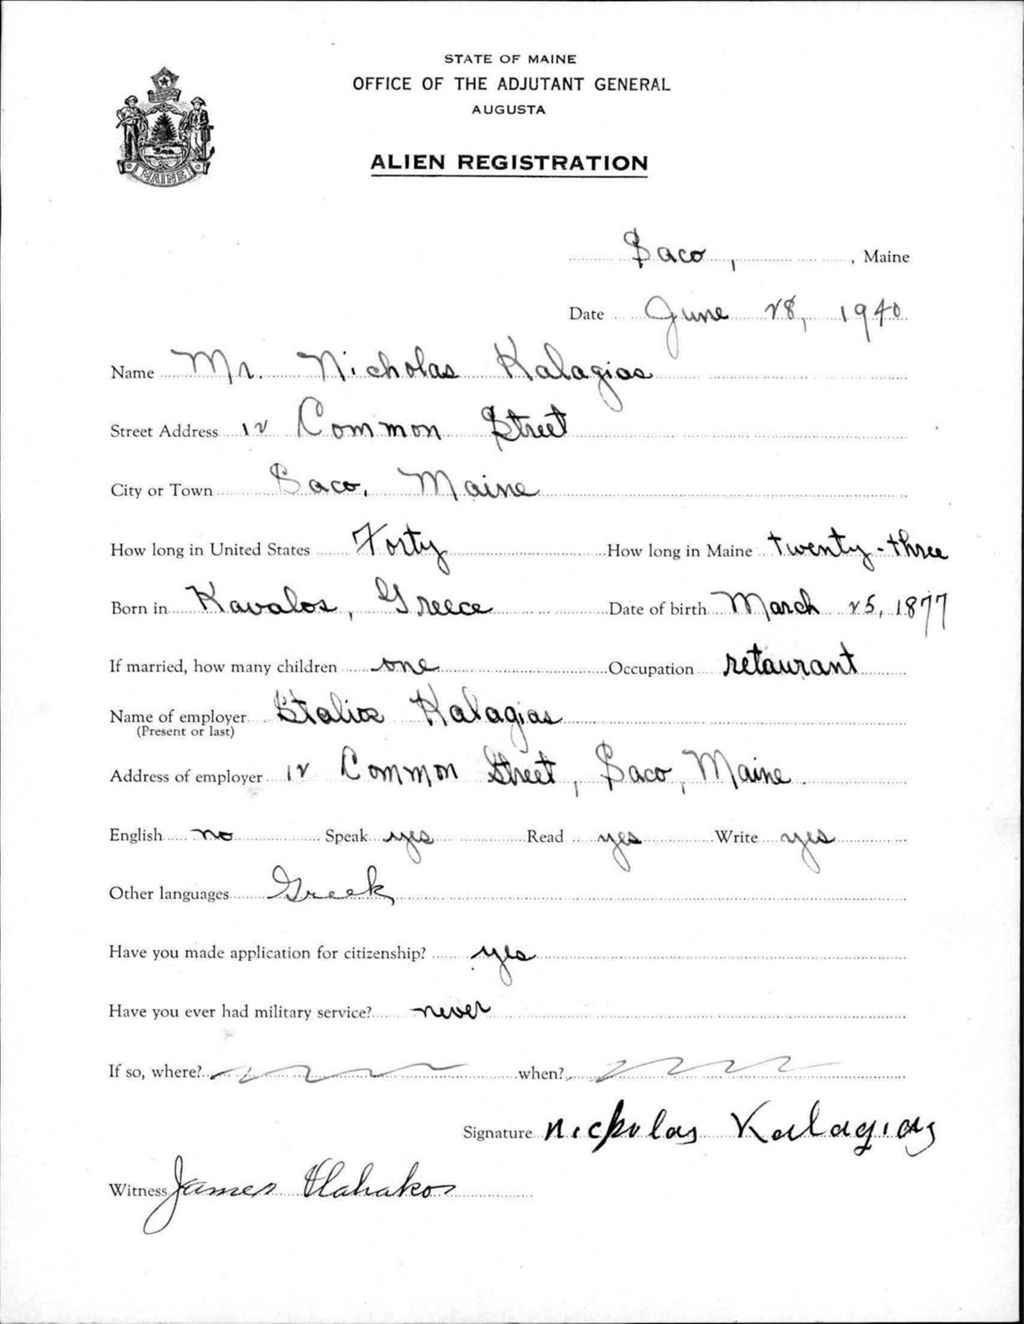 STATE OF MAINE
OFFICE OF THE ADJUTANT GENERAL
AUGUSTA
ALIEN REGISTRATION
MAINE
Saco, , Maine
Date June 28, 1940
Name Mr. Nicholas Kalagias
Street Address 12 Common Street
City or Town Saco, Maine
How long in United States Forty How long in Maine twenty-three
Born in Kavalos, Greece Date of birth March 25, 1877
If married, how many children one Occupation retaurant
Name of employer Kalagias
(Present or last)
Address of employer 12 Common Street, Saco, Maine.
English no Speak yes Read yes Write yes
Other languages Greek
Have you made application for citizenship? yes
Have you ever had military service? never
If so, where? when?
Signature Nicholas Kalagias
Witness James